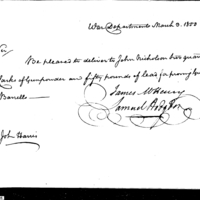 War Department March 3. 1800
Sir,
Be pleased to deliver to John Nicholson two quar
Casks of Gunpowder and fifty pounds of lead for proving
Barrells
James McHenry
Samuel Hodgdon
John Harris